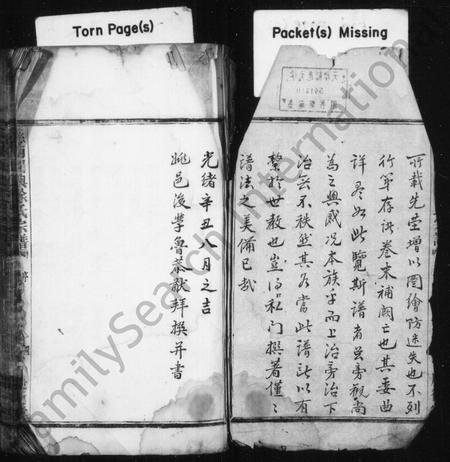 Torn Page(s)
Packet(s) Missing
所載先塋增以圖繪防迷失也不列
行第存誤卷末補闕亡也其委曲
詳盡如此覽斯譜者從旁觀尚
為之興感況本族乎而上治旁治下
治無不秩然其各當此譜所以有
繫於世教也豈得私門撰著僅〻
譜法之美備已哉
光緒辛丑八月之吉
姚邑後學魯恭猷拜撰并書
FamilySearch International